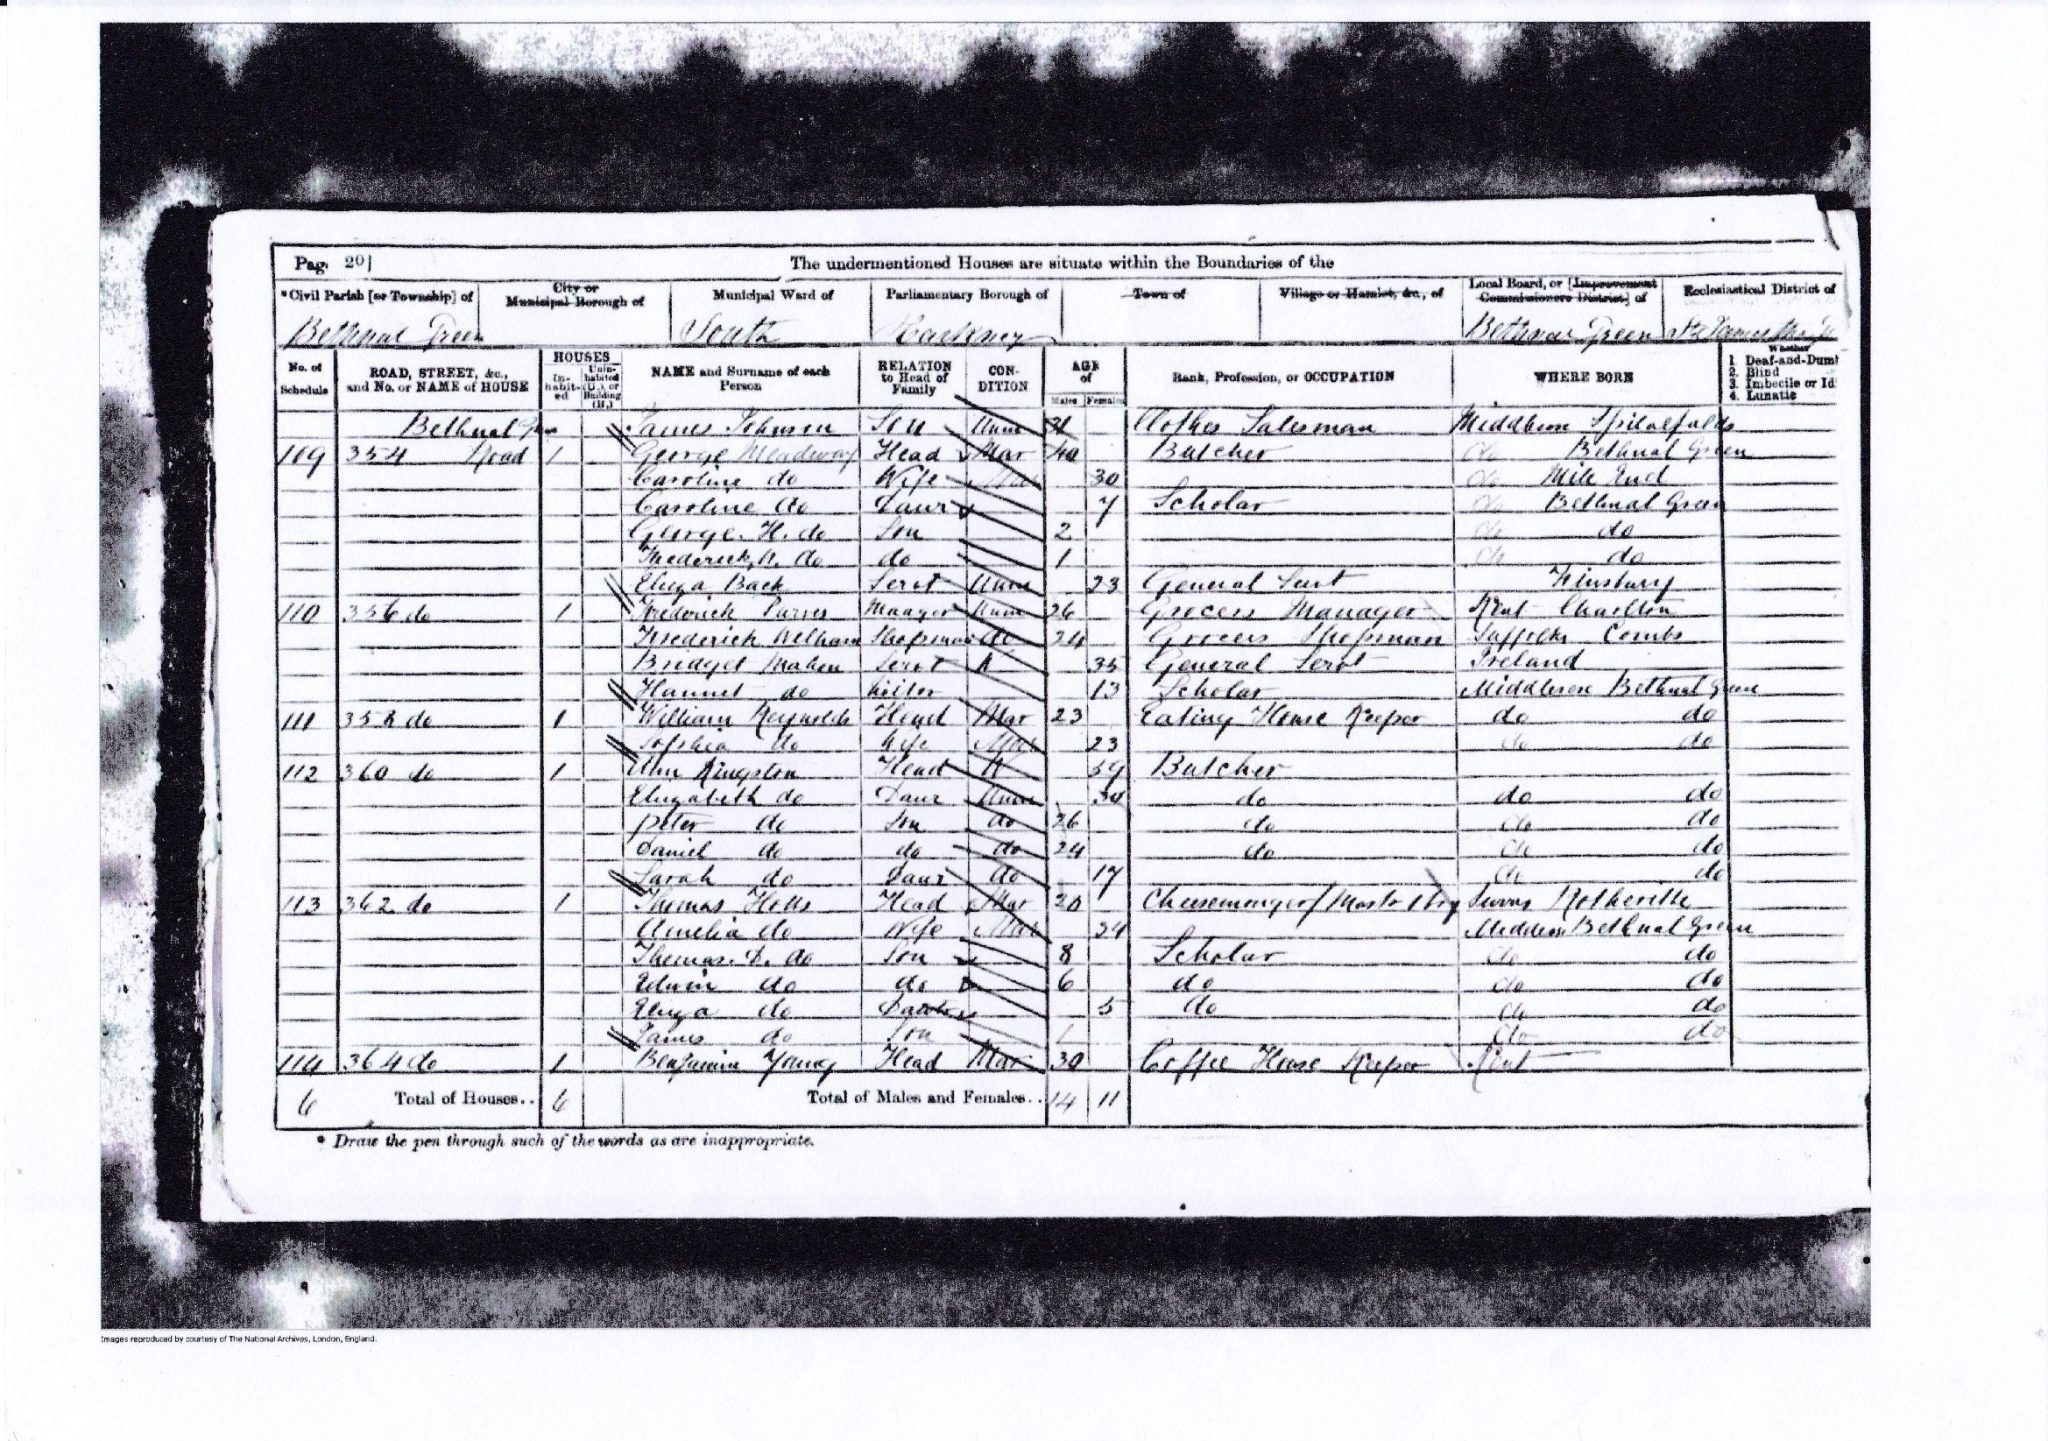 Page 20]
The undermentioned Houses are situate within the Boundaries of the
*Civil Parish [or Township] of
City or Municipal Borough of
Municipal Ward of
Parliamentary Borough of
Town of
Village or Hamlet, &c., of
Local Board, or [Improvement Commissioners District] of
Ecclesiastical District of
Bethnal Green South Hackney Bethnal Green St James the
No. of Schedule
ROAD, STREET, &c., and No. or NAME of HOUSE
HOUSES
Inhabited
Uninhabited (U.), or Building (B.)
NAME and Surname of each Person
RELATION to Head of Family
CONDITION
AGE of
Males Females
Rank, Profession, or OCCUPATION
WHERE BORN
Whether
1. Deaf-and-Dumb
2. Blind
3. Imbecile or Id
4. Lunatic
Bethnal Green James Johnson Son Unm Clothes Salesman Middlesex Spitalfields
109 354 Road 1 George Meadway Head Mar 40 Butcher do Bethnal Green
Caroline do Wife Mar 30 do Mile End
Caroline do Daur 7 Scholar do Bethnal Green
George H. do Son 2 do do
Frederick do do 1 do do
Eliza Back Servt Unm 23 General Servt Finsbury
110 356 do 1 Frederick Manager Unm 26 Grocers Manager Kent Charlton
Frederick Welham Shopman do 24 Grocers Shopman Suffolk Combs
Bridget Mahen Servt W 35 General Servt Ireland
do Visitor 13 Scholar Middlesex Bethnal Green
111 358 do 1 William Reynolds Head Mar 23 Eating House Keeper do do
Sophia do Wife Mar 23 do do
112 360 do 1 Ann Kingston Head W 59 Butcher
Elizabeth do Daur Unm 30 do do do
Peter do Son do 26 do do do
Daniel do do do 24 do do do
Sarah do Daur do 17 do do
113 362 do 1 Thomas Head Mar Cheesemonger/Mastr Rotherithe
Amelia do Wife Mar Middlesex Bethnal Green
Thomas. D. do Son 8 Scholar do do
Edwin do do 6 do do do
Eliza do 5 do do do
James do Son 1 do do
114 364 do 1 Benjamin Young Head Mar 30 Coffee House Keeper Kent
6 Total of Houses.. 6 Total of Males and Females.. 14 11
* Draw the pen through such of the words as are inappropriate.
Images reproduced by courtesy of The National Archives, London, England.